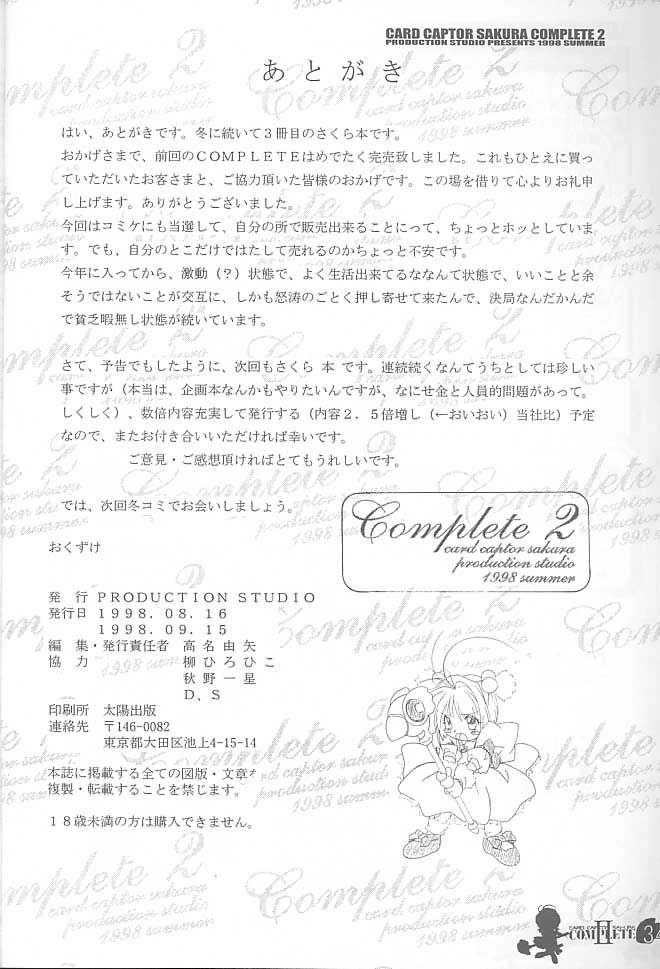 CARD CAPTOR SAKURA COMPLETE 2
PRODUCTION STUDIO PRESENTS 1998 SUMMER
あとがき
はい、あとがきです。冬に続いて３冊目のさくら本です。
おかげさまで、前回のＣＯＭＰＬＥＴＥはめでたく完売致しました。これもひとえに買っ
ていただいたお客さまと、ご協力頂いた皆様のおかげです。この場を借りて心よりお礼申
し上げます。ありがとうございました。
今回はコミケにも当選して、自分の所で販売出来ることにって、ちょっとホッとしていま
す。でも、自分のとこだけではたして売れるのかちょっと不安です。
今年に入ってから、激動（？）状態で、よく生活出来てるななんて状態で、いいことと余
そうではないことが交互に、しかも怒涛のごとく押し寄せて来たんで、決局なんだかんだ
で貧乏暇無し状態が続いています。
さて、予告でもしたように、次回もさくら 本 です。連続続くなんてうちとしては珍しい
事ですが（本当は、企画本なんかもやりたいんですが、なにせ金と人員的問題があって。
しくしく）、数倍内容充実して発行する（内容２．５倍増し（←おいおい）当社比）予定
なので、またお付き合いいただければ幸いです。
ご意見・ご感想頂ければとてもうれしいです。
では、次回冬コミでお会いしましょう。
Complete 2
card captor sakura
production studio
1998 summer
おくずけ
発 行 ＰＲＯＤＵＣＴＩＯＮ ＳＴＵＤＩＯ
発行日 １９９８．０８．１６
１９９８．０９．１５
編 集・発行責任者 高名由矢
協 力 柳ひろひこ
秋野一星
Ｄ、Ｓ
印刷所 太陽出版
連絡先 〒146-0082
東京都大田区池上4-15-14
本誌に掲載する全ての図版・文章
複製・転載することを禁じます。
１８歳未満の方は購入できません。
CARD CAPTOR SAKURA
COMPLETE II
34